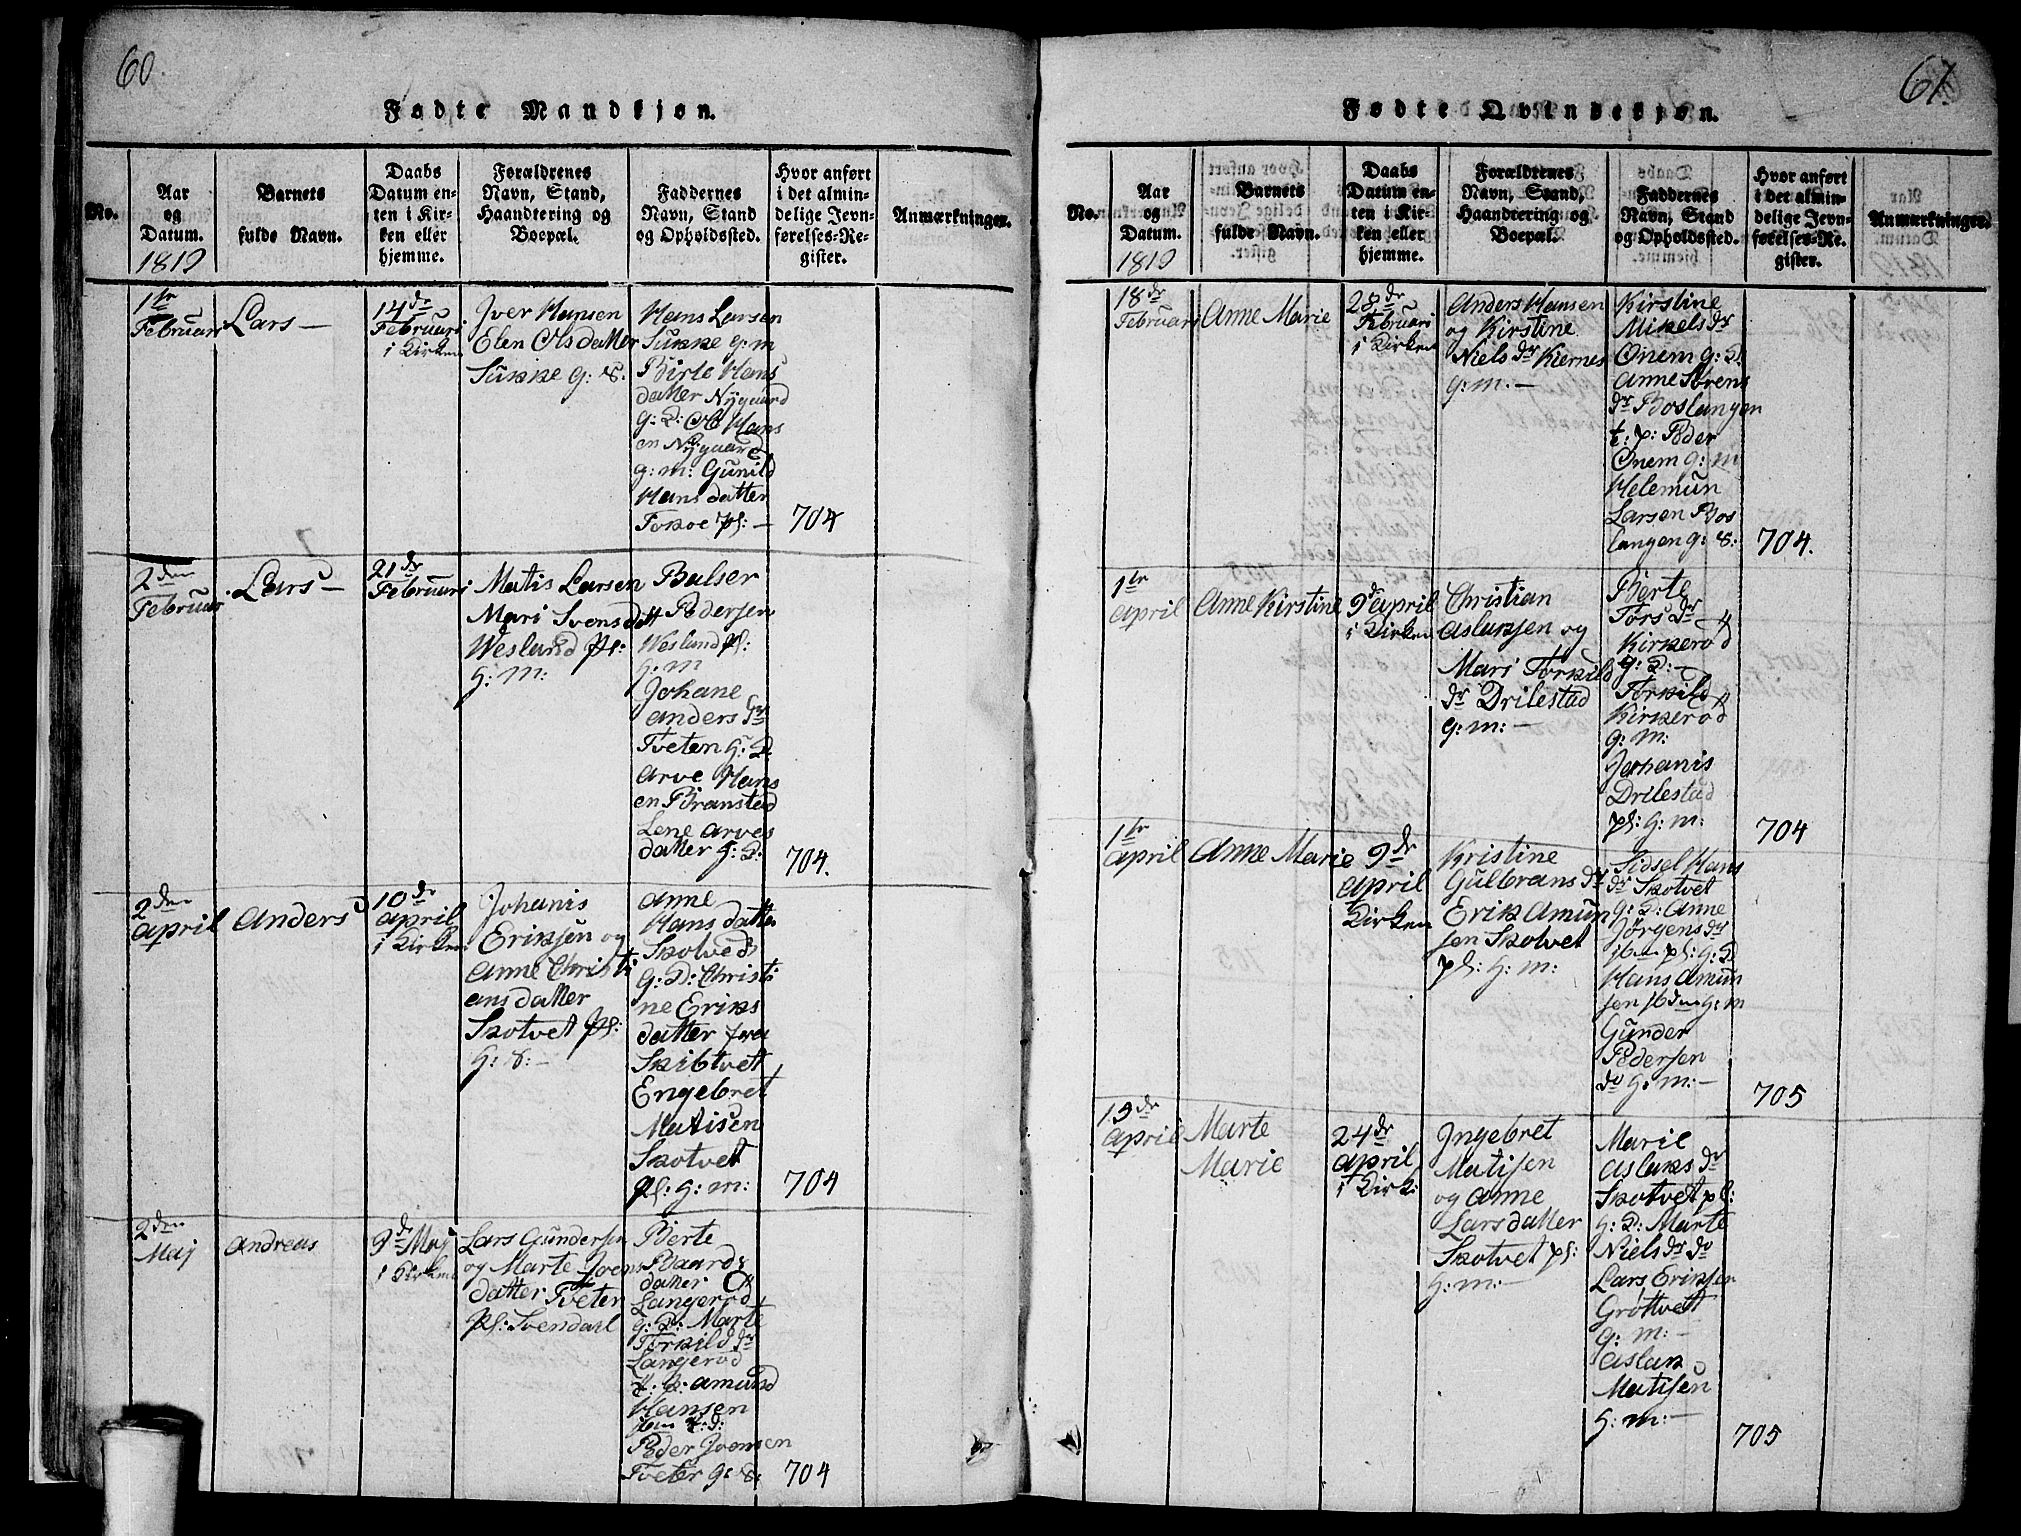 60.
Fødte Mandkjøn.
No.
Aar
og
Datum.
1819
Barnets
fulde Navn.
Daabs
Datum en-
ten i Kir-
ken eller
hjemme.
Forældrenes
Navn, Stand,
Haandtering og
Boepæl.
Faddernes
Navn, Stand
og Opholdssted.
Hvor anført
i det almin-
delige Jevn-
førelses-Re-
gister.
Anmærkninger.
1ste
Februari
Lars
14de
Februari
i Kirken
Iver Hansen
Elen Olsdatter
Sukke g: s.
Hans Larsen
Sukke g: m
Birte Hans
datter Nygaard
g: D: Ole Hans
en Nygaard
g: m: Gunild
Hans datter
Foskoe pl: —
704
2den
Februari
Lars —
21de
Februari
Matis Larsen
Mari Svensdatt
Weslund pl:
g: m:
Balser
Pedersen
Weslund pl:
g: m
Johane
anders dr
Tveten g: D
arve Hans
en Branstad
Lene arves
datter g: D:
704.
2den
april
Anders
10de
april
i Kirken
Johanis
Eriksen og
Anne Christi
ans datter
Skotvet pl:
g: s: —
Anne
Hans datter
Skotved
g: D: Christi
ne Eriks
datter
Skibtvet
Engebret
Matisen
Skotvet
pl: g: m:
704
2den
Maj
Andreas
9de Maj
i Kirken
Lars Gundersen
og Marte Joens
datter Tveten
pl: Svendsl
Berte
Baards
datter
Langerød
g: D: Marte
Torkild dr
Langerød
Amund
Hansen
Peder Joensen
Tveter g: s:
704
61.
Fødte Qvindekjøn.
No.
Aar
og
Datum.
1819
Barnets
fulde Navn.
Daabs
Datum en-
ten i Kir-
ken eller
hjemme.
Forældrenes
Navn, Stand,
Haandtering og
Boepæl.
Faddernes
Navn, Stand
og Opholdssted.
Hvor anført
i det almin-
delige Jevn-
førelses-Re-
gister.
Anmærkninger.
18de
Februari
Anne Marie
28de
Februari
i Kirken
Anders Hansen
og Kirstine
Niels dr Kiernes
g: m: —
Kirstine
Mikels dr
Onem g: D.
Anne Sørens
dr Boslangen
t: p: Peder
Onem g: m
Helemun
Larsen Bos
langen g: s:
704.
1ste
april
Anne Kirstine
9de april
i Kirken
Christian
Aslaksen og
Mari Torkild
dr Drilestad
g: m: —
Berte
Tors dr
Kirkerød
g: D: —
Torkild
Kirkerød
g: m:
Johanis
Drilestad
pl: g: m:
704
1ste
april
Anne Marie
9de
april
i Kirken
Kristine
Gulbrans dr
Erik Amun
sen Skotvet
pl: g: m:
Sidsel Hans
dr Skotvet
g: D: Anne
Jørgens dr
ibm pl: g: D
Hans Amun
sen ibden g: m
Gunder
Pedersen
do g: m: —
705
19de
april
Marte
Marie
24de
april
i Kirk:
Ingebret
Matisen
og Anne
Lars datter
Skotvet pl:
g: m: —
Marie
Aslaks dr
Skotvet pl:
g: D: Marte
Niels dr do
Lars Eriksen
Grøttvett
g: m: —
Aslak
Matisen
g: m: —
705